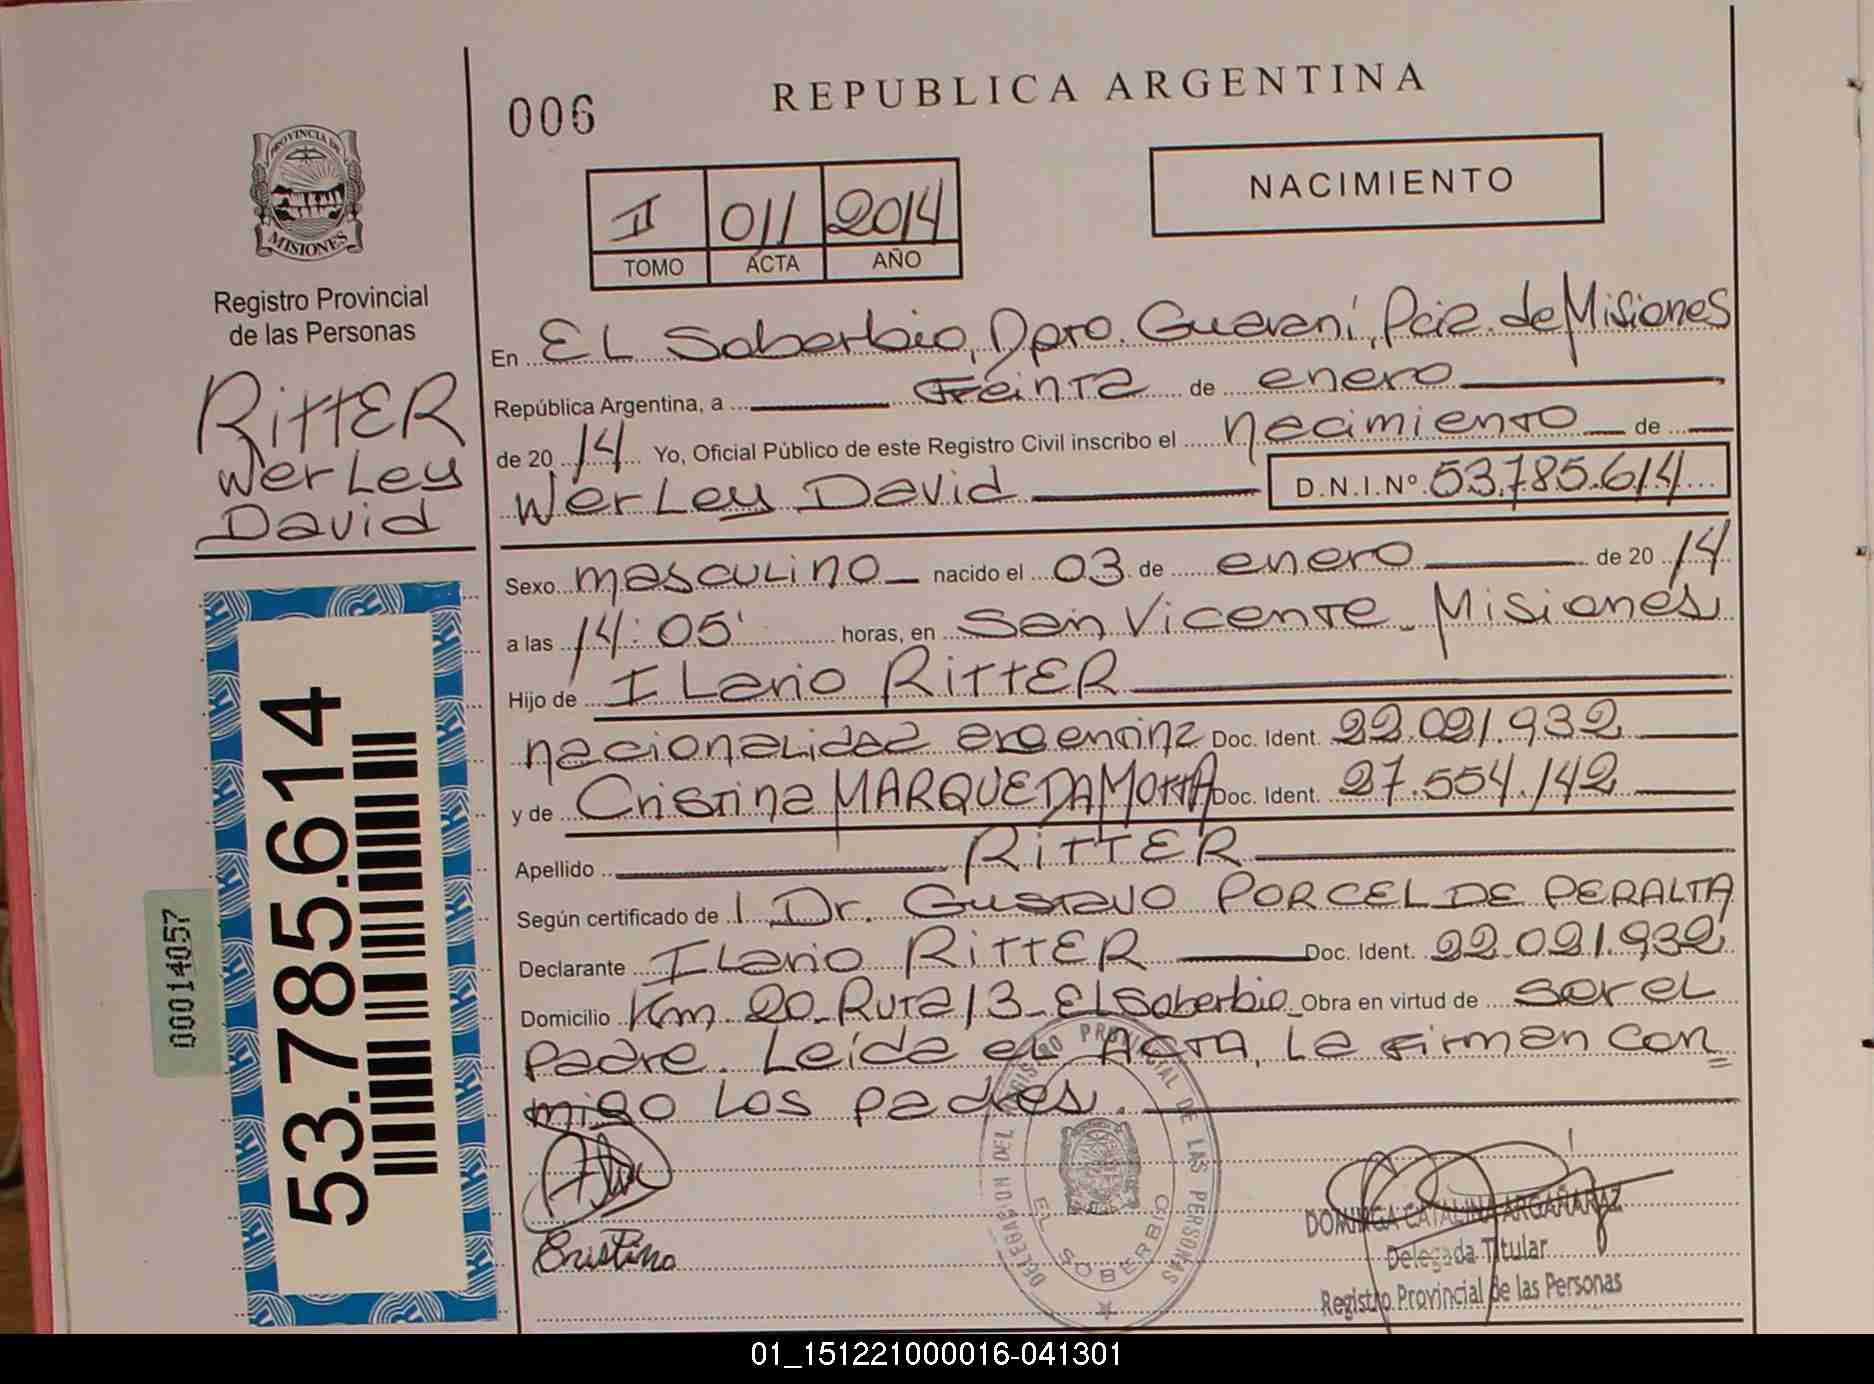 006
REPUBLICA ARGENTINA
PROVINCIA DE
MISIONES
Registro Provincial
de las Personas
II 011 2014
TOMO ACTA AÑO
NACIMIENTO
RITTER
Werley
David
53.785.614
00014057
En EL Soberbio, Dpto. Guaraní, Pcia. de Misiones
República Argentina, a treinta de enero
de 2014 Yo, Oficial Público de este Registro Civil inscribo el nacimiento de
Werley David D.N.I.Nº 53.785.614
Sexo masculino nacido el 03 de enero de 2014
a las 14:05' horas, en San Vicente - Misiones
Hijo de Ilario RITTER
nacionalidad argentina Doc. Ident. 22.021.932
y de Cristina MARQUEDAMOTTA Doc. Ident. 27.554.142
Apellido RITTER
Según certificado de 1 Dr. Gustavo PORCEL DE PERALTA
Declarante Ilario RITTER Doc. Ident. 22.021.932
Domicilio Km. 20 - Ruta 13 - El Soberbio Obra en virtud de ser el
padre. Leída el ACTA, la firman con
migo los padres.
Cristina
DELEGACION DEL REGISTRO PROVINCIAL DE LAS PERSONAS
EL SOBERBIO
DOMINGA CATALINA ARGAÑARAZ
Delegada Titular
Registro Provincial de las Personas
01_151221000016-041301